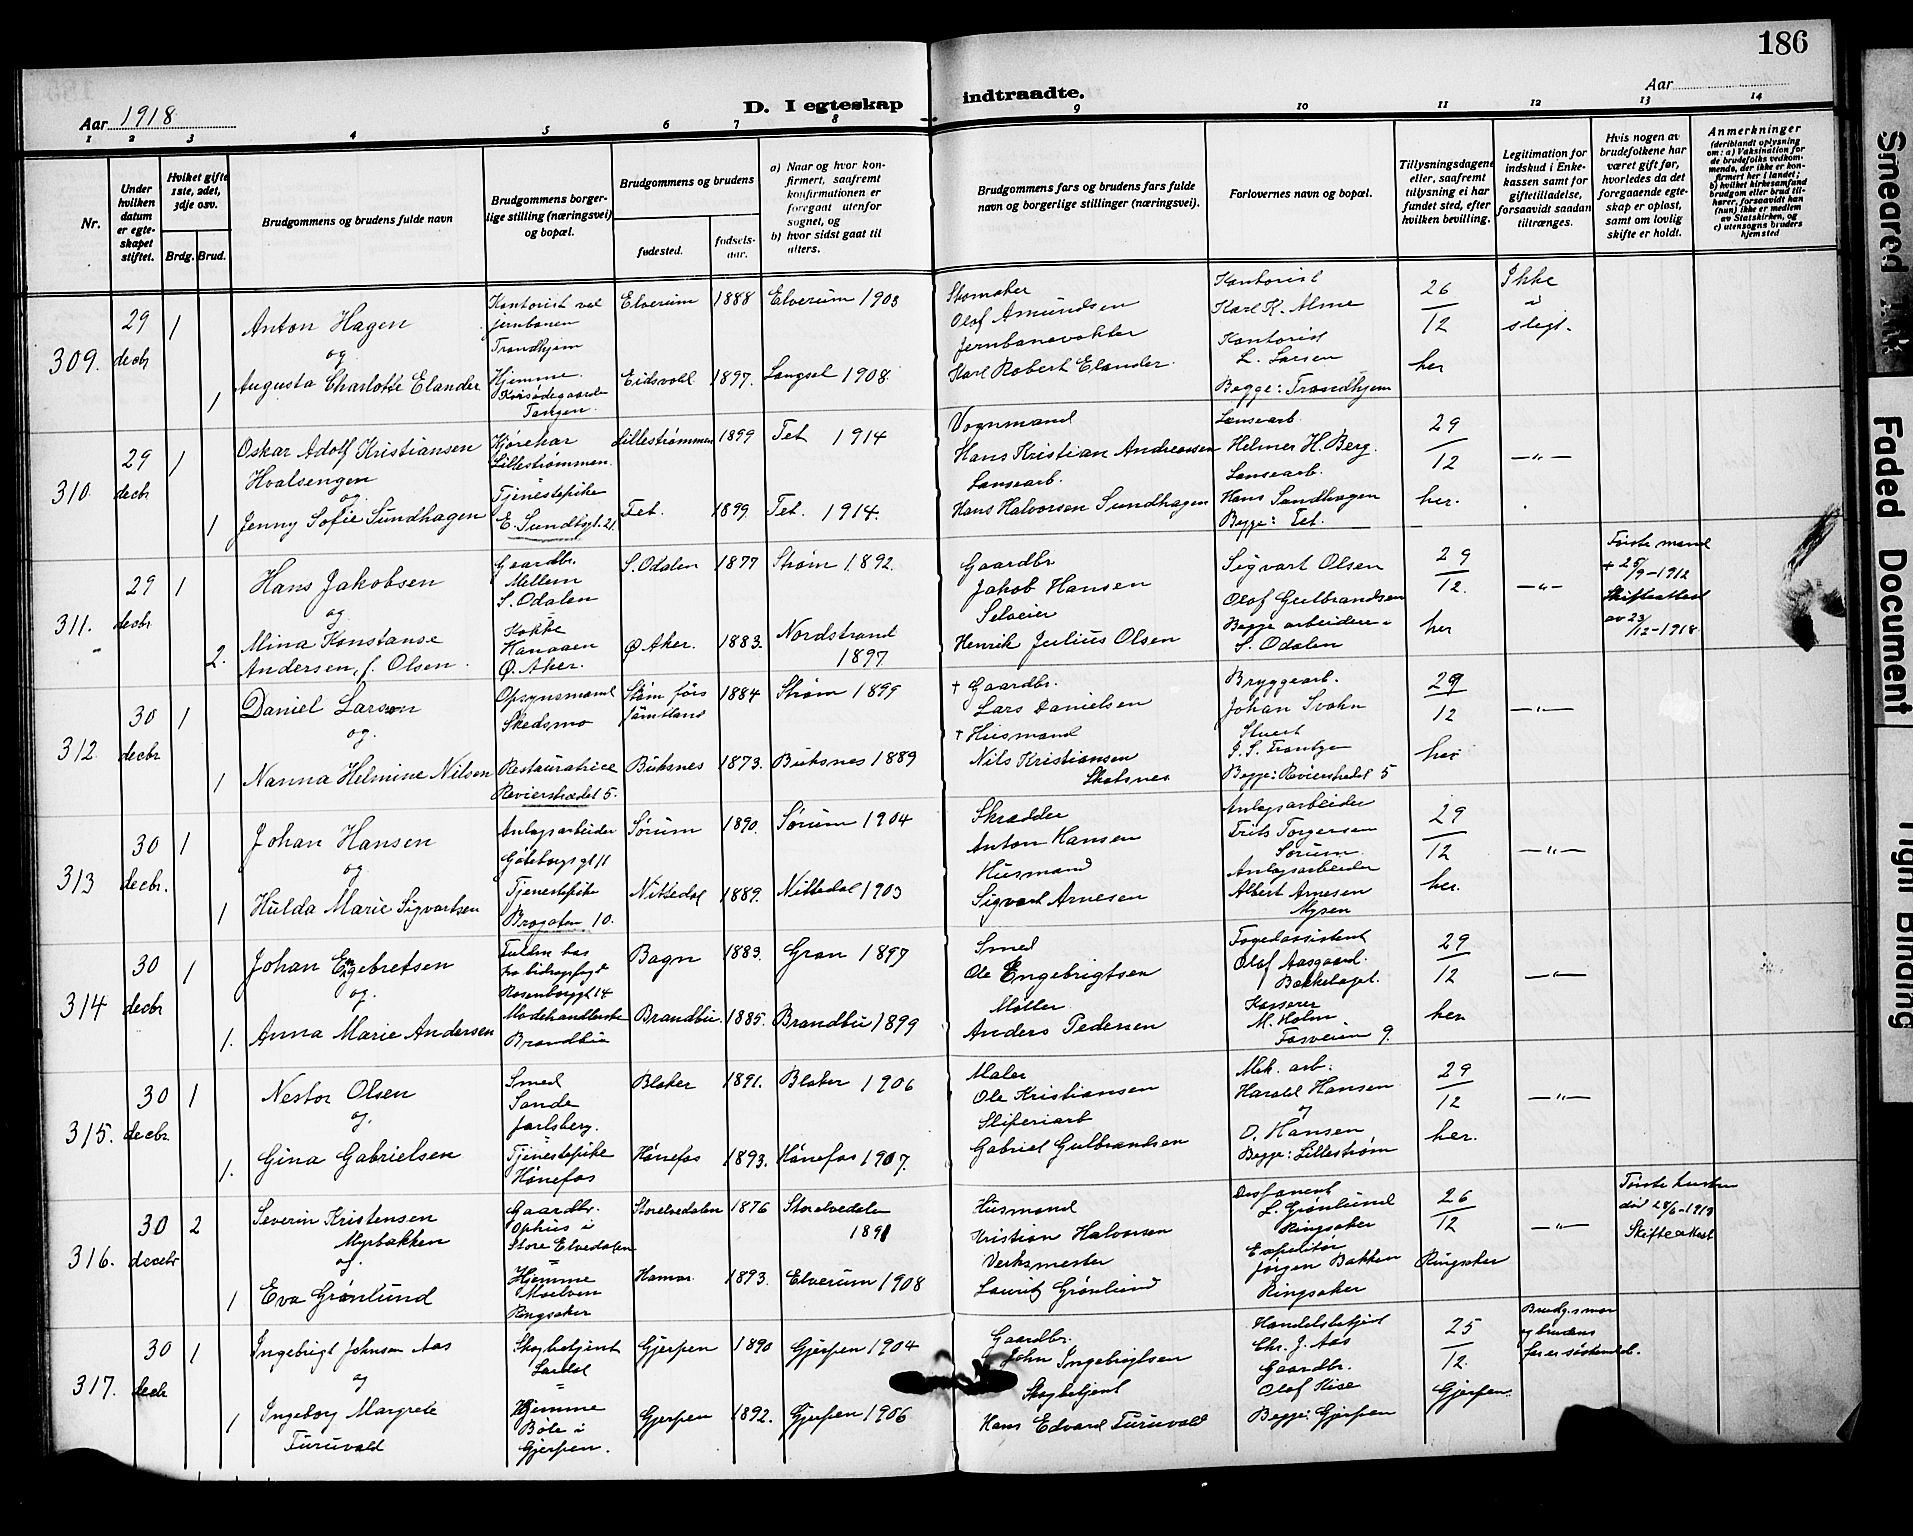 186
Aar 1918
D. I egteskap indtraadte.
Aar
1 2 3 4 5 6 7 8 9 10 11 12 13 14
Nr.
Under hvilken datum er egteskapet stiftet.
Hvilket gifte 1ste, 2det, 3dje osv.
Brdg. Brud.
Brudgommens og brudens fulde navn
Brudgommens borgerlige stilling (næringsvei) og bopæl.
Brudgommens og brudens
fødested.
fødselsaar.
a) Naar og hvor konfirmert, saafremt konfirmationen er foregaat utenfor sognet, og
b) hvor sidst gaat til alters.
Brudgommens fars og brudens fars fulde navn og borgerlige stillinger (næringsvei).
Forlovernes navn og bopæl.
Tillysningsdagene eller, saafremt tillysning ei har fundet sted, efter hvilken bevilling.
Legitimation for indskud i Enkekassen samt for giftetilladelse, forsaavidt saadan tiltrænges.
Hvis nogen av brudefolkene har været gift før, hvorledes da det foregaaende egteskap er opløst, samt om lovlig skifte er holdt.
Anmerkninger (deriblandt oplysning om: a) Vaksination for de brudefolks vedkommende, der ikke er konfirmert her i landet; b) hvilket kirkesamfund brudgom eller brud tilhører, forsaavidt han (hun) ikke er medlem av Statskirken, og c) utensogns bruders hjemsted
309. 29 decbr 1 Anton Hagen
og
1 Augusta Charlotte Elander
Kontorist ved jernbanen Trondhjem
Hjemme Korsødegaarden Tangen.
Elverum 1888 Elverum 1903
Eidsvold 1897. Langset 1908.
Skomaker Olof Amundsen
Jernbanevokter Karl Robert Elander.
Kontorist Karl K. Alme
Kontorist L. Larsen
Begge: Trondhjem
26/12 her
Ikke i slegt.
310. 29 decbr 1 Oskar Adolf Kristiansen Hvalsengen
og
1 Jenny Sofie Sundhagen
Kjørekar Lillestrømmen.
Tjenestepike E. Sundtsgt. 21
Lillestrømmen 1899 Fet 1914
Fet. 1899 Fet. 1914.
Vognmand Hans Kristian Andreassen
Lensearb. Hans Halvorsen Sundhagen
Lensearb. Helmer H. Berg.
Lensearb. Hans Sundhagen
Begge: Fet.
29/12 her.
—"—
311. 29 decbr 1 Hans Jakobsen
og
2. Mina Konstanse Andersen, f. Olsen.
Gaardbr. Mellem S. Odalen
Kokke Kanaaen Ø. Aker.
S. Odalen 1877 Strøm 1892.
Ø. Aker. 1883. Nordstrand 1897
Gaardbr. Jakob Hansen
Selveier Henrik Julius Olsen
Sigvart Olsen
Olof Gulbrandsen
Begge arbeidere S. Odalen
29/12. her
—"—
Første mand + 25/9-1912 Skifteattest av 23/12-1918.
312. 30 decbr 1 Daniel Larson
og.
1 Nanna Helmine Nilsen
Opsynsmand Skedsmo
Restauratrice Revierstrædet 5.
Strøm førs Jämtland 1884 Strøm 1899
Buksnes 1873. Buksnes 1889
† Gaardbr. Lars Danielsen
† Husmand Nils Kristiansen Skotsnes
Bryggearb. Johan Svohn
Stuert
Begge: Revierstrædet 5
29/12 her
—"—
313 30 decbr. 1 Johan Hansen
og
1 Hulda Marie Sigvartsen
Anlægsarbeider Gøteborgsgt 11
Tjenestepike Brogaten 10.
Sørum 1890. Sørum 1904
Nittedal 1889. Nittedal 1903
Skrædder Anton Hansen
Husmand Sigvart Arnesen
Anlægsarbeider Frits Torgersen Sørum.
Anlægsarbeider Albert Arnesen Mysen
29/12 her.
—"—
314 30 decbr 1 Johan Engebretsen
og.
1. Anna Marie Andersen
Rosenborggt 14
Modehandlerske Brandbu
Bagn 1883. Gran 1897
Brandbu 1885. Brandbu 1899
Smed Ole Engebrigtsen
Møller Anders Pedersen
Fogedassistent Olof Aasgaard. Bækkelaget.
Kasserer M. Holm Fosveien 9.
29/12 her
—"—
315. 30 decbr. 1 Nestor Olsen
og.
1. Gina Gabrielsen
Smed Sande Jarlsberg.
Tjenestepike Hønefos
Blaker 1891. Blaker 1906
Hønefos 1893. Hønefos 1907.
Maler Ole Kristiansen
Sliperiarb Gabriel Gulbrandsen
Mek. arb. Harald Hansen
og
O. Hansen
Begge: Lillestrøm
29/12 her.
—"—
316. 30 decbr 2 Severin Kristensen Myrbakken
og.
1 Eva Grønlund
Gaardbr. Ophus i Store Elvedalen
Hjemme Moelven Ringsaker
Storelvedalen 1876 Storelvedalen 1891
Hamar. 1893. Elverum 1908
Husmand Kristian Halvorsen
Verksmester Lauritz Grønlund
Disponent L. Grønlund Ringsaker
Expeditør Jørgen Bakken Ringsaker
26/12 Ringsaker
—"—
Første hustru død 28/6-1918 Skifteattest
317. 30 decbr 1 Ingebrigt Johnsen Aas
og
1 Ingeborg Margrete Furuvald
Skogbetjent Lardal
Hjemme Bøle i Gjerpen.
Gjerpen 1890 Gjerpen 1904
Gjerpen 1892. Gjerpen 1906
Gaardbr. John Ingebrigtsen
Skogbetjent Hans Edvard Furuvald
Handelsbetjent Chr. J. Aas
Gaardbr. Olof Hise
Begge: Gjerpen
25/12. Gjerpen.
Brudg.s mor og brudens far er søskende.
Smeared Ink
Faded Document
Tight Binding